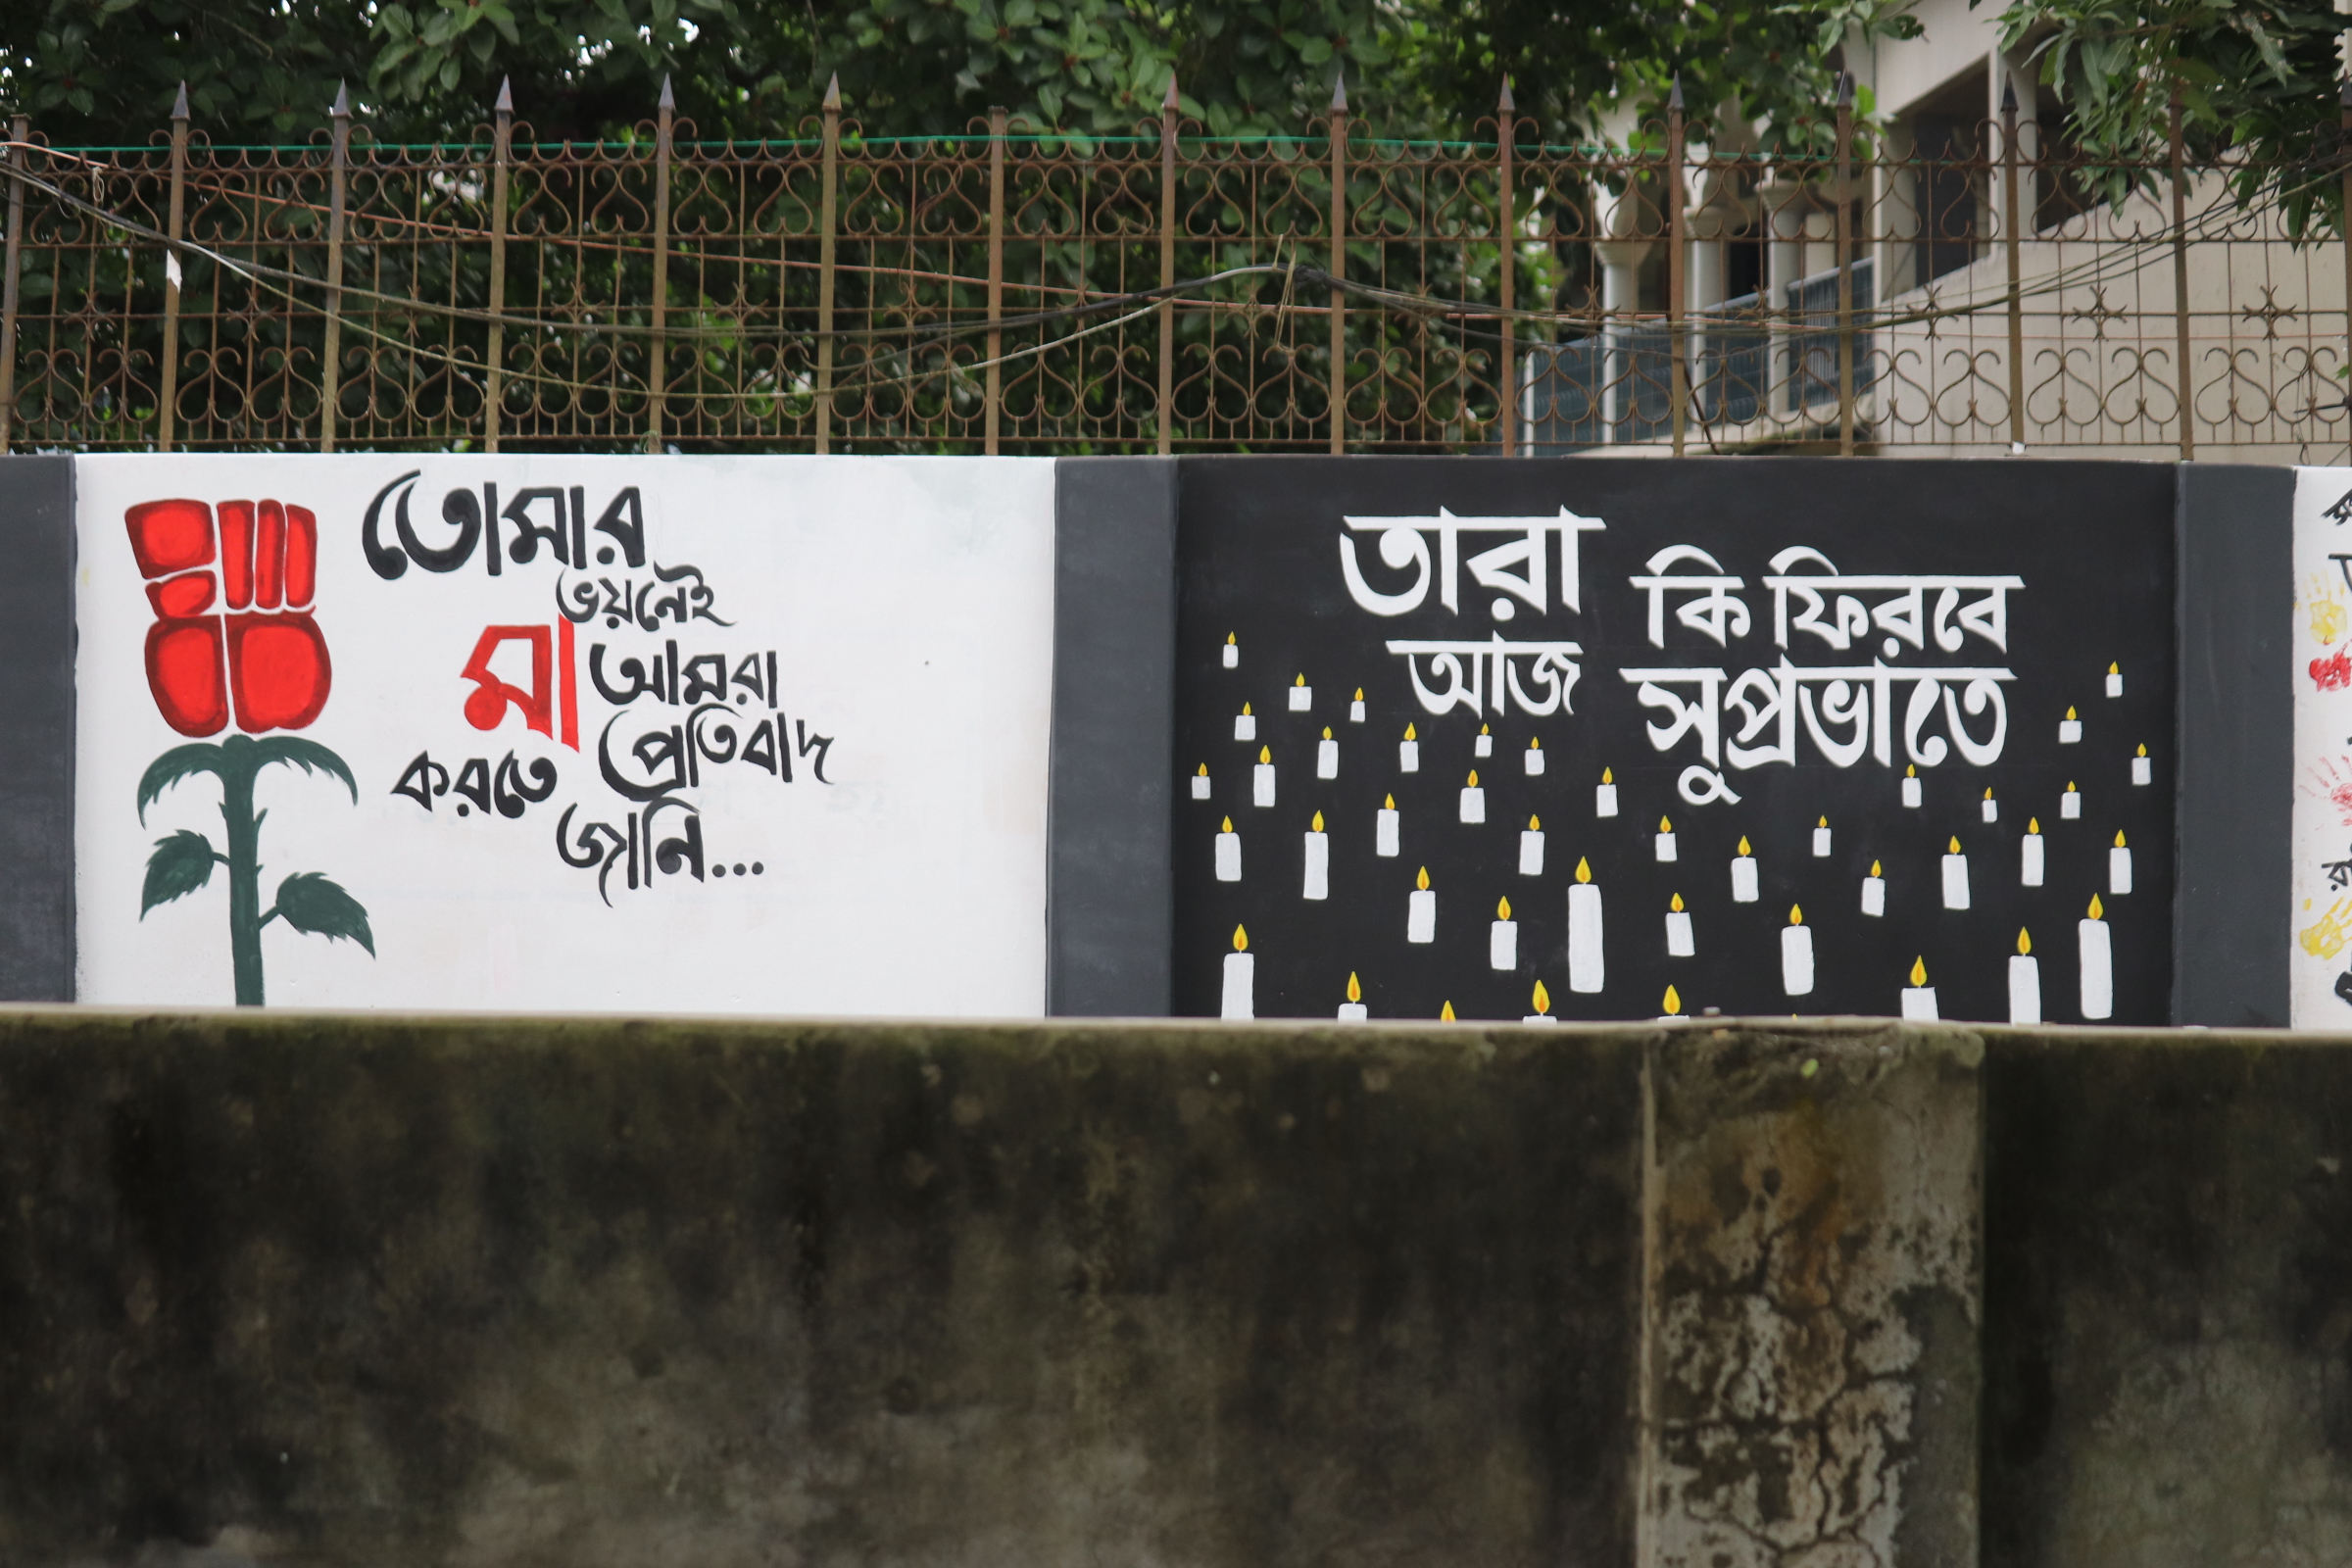 তোমার
ভয়নেই
মা আমরা
প্রতিবাদ
করতে
জানি...
তারা কি ফিরবে
আজ সুপ্রভাতে